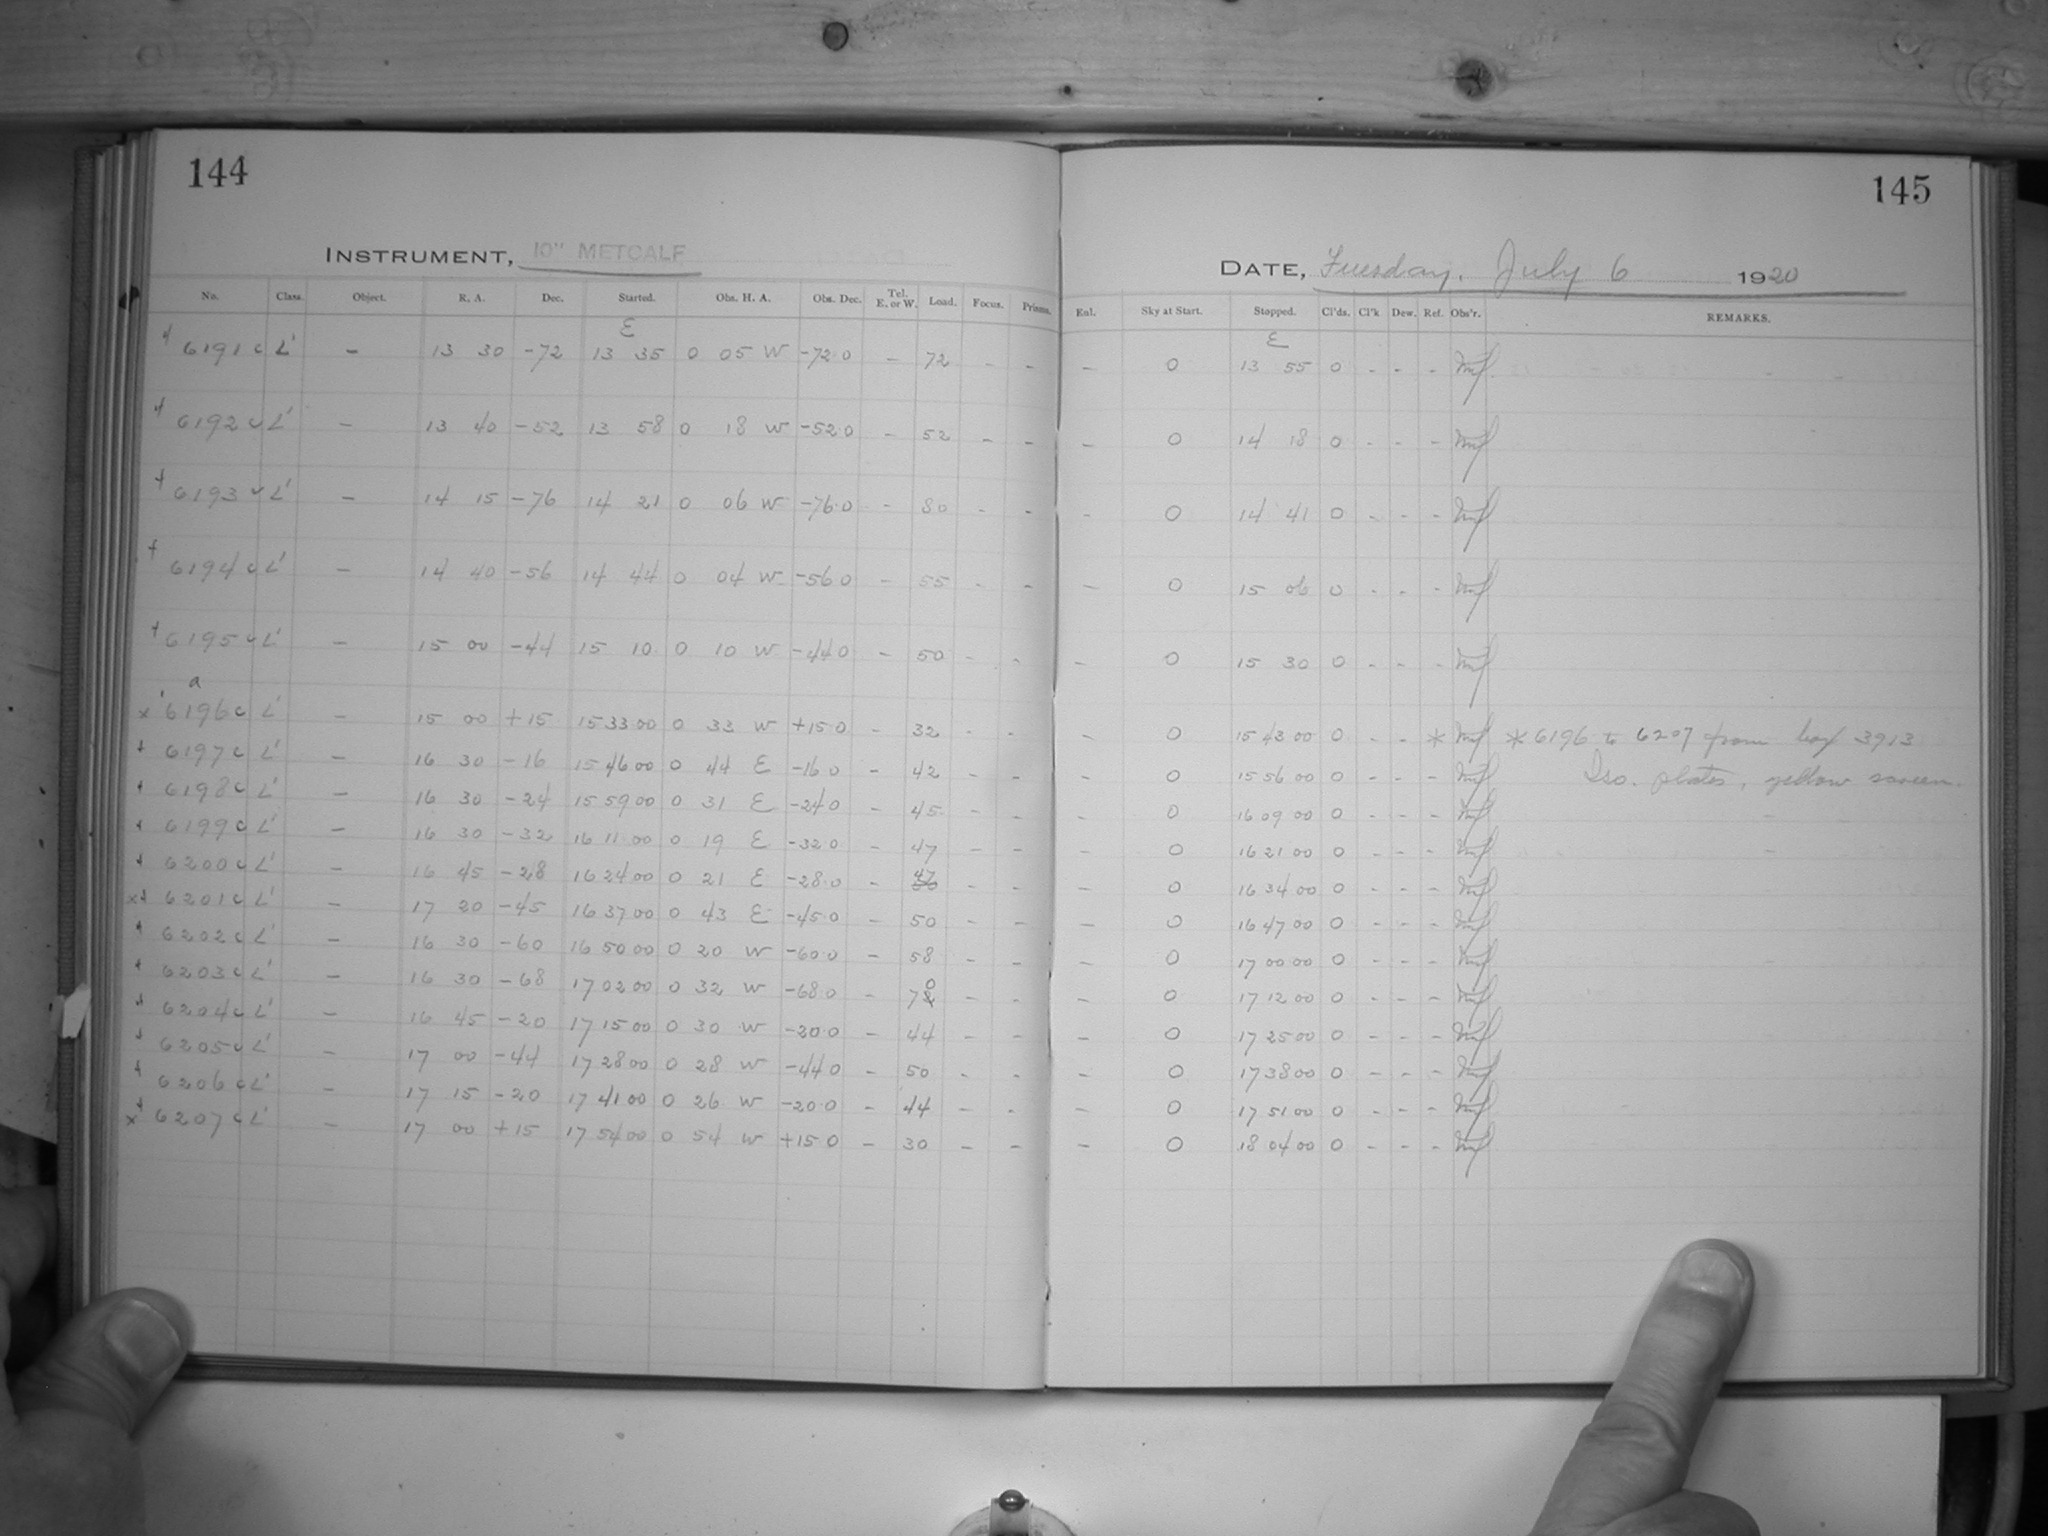 144
145
INSTRUMENT, 10" METCALF
DATE, Tuesday, July 6 1920
No. Class. Object. R. A. Dec. Started. Obs. H. A. Obs. Dec. Tel. E. or W. Load. Focus. Prisms. Enl. Sky at Start. Stopped. Cl'ds. Cl'k Dew. Ref. Obs'r. REMARKS.
E E
6191 c L' - 13 30 -72 13 35 0 05 W -72.0 - 72 - - - 0 13 55 0 - - -
6192 c L' - 13 40 -52 13 58 0 18 W -52.0 - 52 - - - 0 14 18 0 - - -
6193 c L' - 14 15 -76 14 21 0 06 W -76.0 - 80 - - - 0 14 41 0 - - -
6194 c L' - 14 40 -56 14 44 0 04 W -56.0 - 55 - - - 0 15 06 0 - - -
6195 c L' - 15 00 -44 15 10 0 10 W -44.0 - 50 - - - 0 15 30 0 - - -
a
x 6196 c L' - 15 00 +15 15 33 00 0 33 W +15.0 - 32 - - - 0 15 43 00 0 - - * * 6196 to 6207 from box 3913
6197 c L' - 16 30 -16 15 46 00 0 44 E -16.0 - 42 - - - 0 15 56 00 0 - - - Iso. plates, yellow screen.
6198 c L' - 16 30 -24 15 59 00 0 31 E -24.0 - 45 - - - 0 16 09 00 0 - - -
6199 c L' - 16 30 -32 16 11 00 0 19 E -32.0 - 47 - - - 0 16 21 00 0 - - -
6200 c L' - 16 45 -28 16 24 00 0 21 E -28.0 - 47 - - - 0 16 34 00 0 - - -
x 6201 c L' - 17 20 -45 16 37 00 0 43 E -45.0 - 50 - - - 0 16 47 00 0 - - -
6202 c L' - 16 30 -60 16 50 00 0 20 W -60.0 - 58 - - - 0 17 00 00 0 - - -
6203 c L' - 16 30 -68 17 02 00 0 32 W -68.0 - 70 - - - 0 17 12 00 0 - - -
6204 c L' - 16 45 -20 17 15 00 0 30 W -20.0 - 44 - - - 0 17 25 00 0 - - -
6205 c L' - 17 00 -44 17 28 00 0 28 W -44.0 - 50 - - - 0 17 38 00 0 - - -
6206 c L' - 17 15 -20 17 41 00 0 26 W -20.0 - 44 - - - 0 17 51 00 0 - - -
x 6207 c L' - 17 00 +15 17 54 00 0 54 W +15.0 - 30 - - - 0 18 04 00 0 - - -